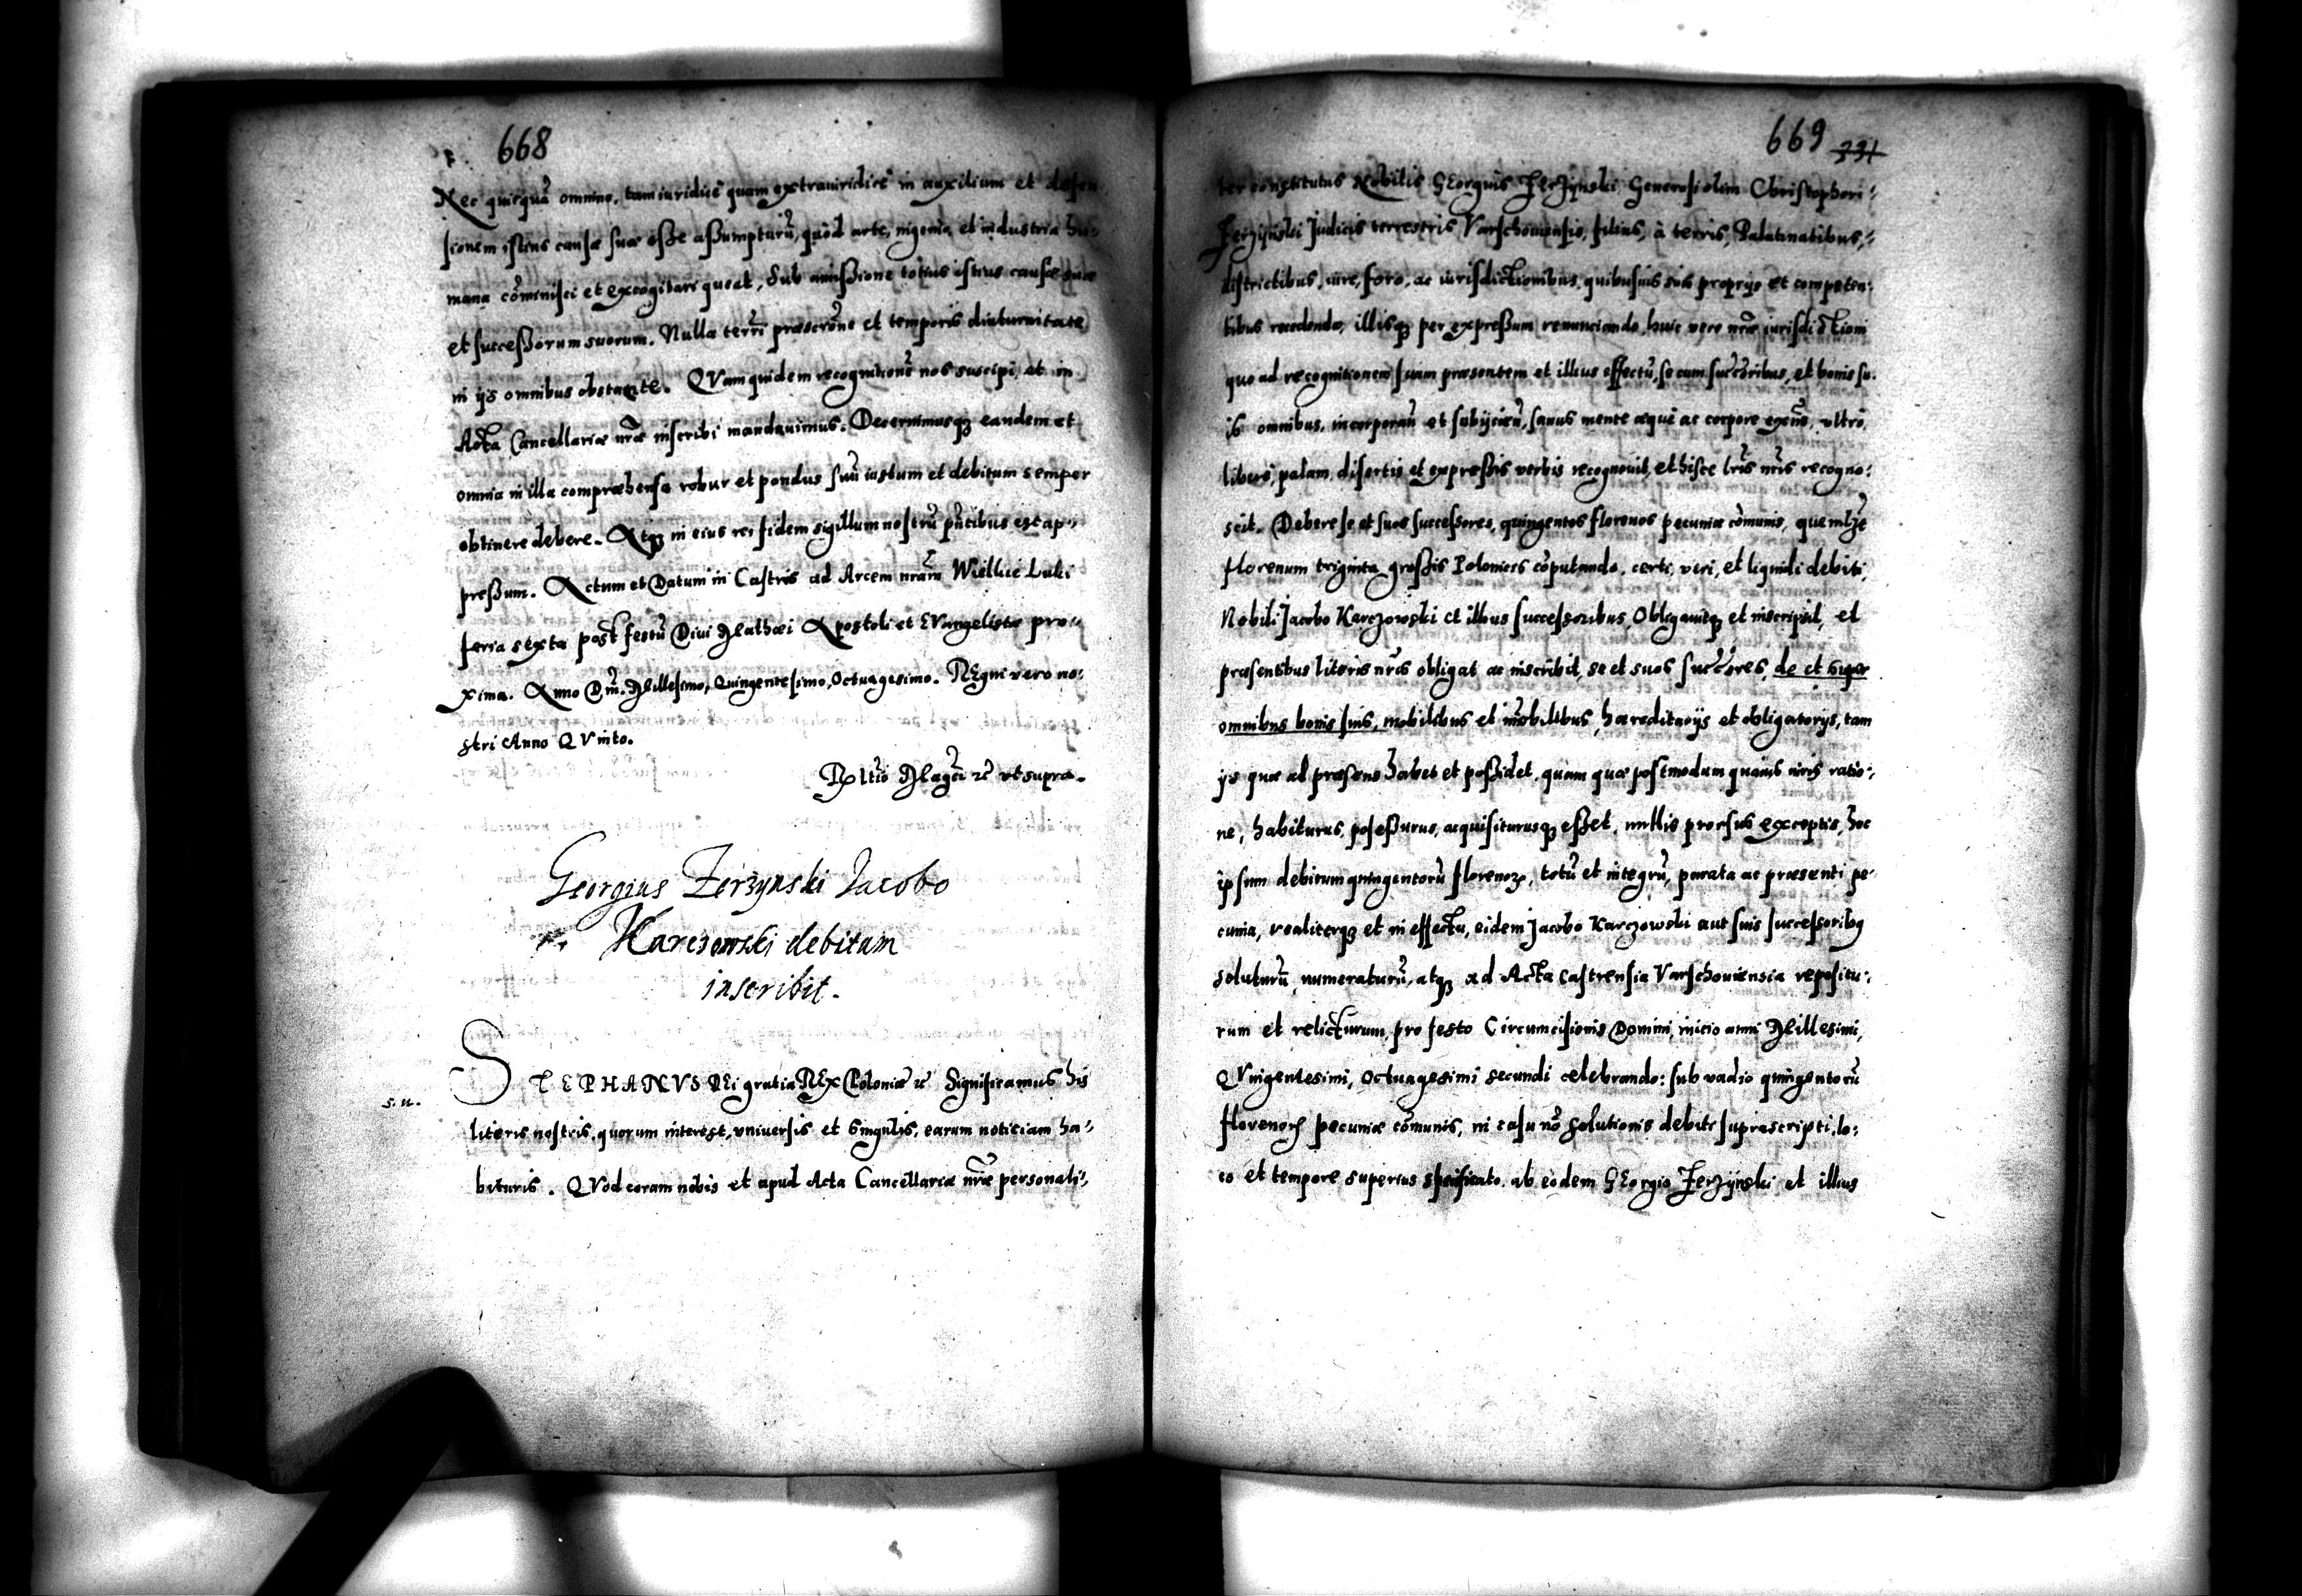 668
Nec quicquã omnino, tam iuridicè quam extraiuridicè in auxilium et defen
sionem istius causæ suæ esse assumpturũ, quod arte, ingenio, et industria hu-
mana cõminisci et excogitari queat, Sub amissione totius istius causæ suæ
et successorum suorum. Nulla terrẽ præscrõne et temporis diuturnitate
in ijs omnibus obstante. QVam quidem recognitionẽ nos suscipi, et in
Acta Cancellariæ nræ inscribi mandauimus. Decernimusq; eandem et
omnia in illa compræhensa robur et pondus suũ iustum et debitum semper
obtinere debere. Atq; in eius rei fidem sigillum nostrũ pñtibus est ap-
pressum. Actum et Datum in Castris ad Arcem nram Wielkie Luki
feria sexta post festũ Diui Mathæi Apostoli et EVangelistæ pro-
xima. Anno Dñi. Millesimo, Quingentesimo, Octuagesimo. REgni vero no-
stri Anno QVinto.
Rltio Magci rc vt supra.
Georgius Zerzynski Jacobo
Karczowski debitum
inscribit.
s. u.
STEPHANVS DEi gratia REx Poloniæ rc Significamus his
literis nostris, quorum interest, vniuersis et singulis, earum noticiam ha-
bituris. QVod coram nobis et apud Acta Cancellariæ nræ personali-
669 331
ter constitutus Nobilis GEorgius Zerzynski Generosi olim Christophori
Zerzynski Judicis terrestris Varschouiensis, filius, à terris, Palatinatibus,
districtibus, iure, foro, ac iurisdictionibus, quibusuis suis proprijs et competen-
tibus recedendo, illisq; per expressum renunciando, huic vero nræ iurisdictioni
quo ad recognitionem suam præsentem et illius effectũ, se cum succõribus, et bonis su-
is omnibus, incorporañ et subijcieñ, sanus mente æquè ac corpore exeñs, vltrò,
liberè, palam, disertis et expressis verbis recognouit, et hisce lris nris recogno-
scit. Debere se et suos successores, quingentos florenos pecuniæ cõmunis, quemlze
florenum triginta grossis Polonicis cõputando, certi, veri, et liquidi debiti,
Nobili Jacobo Karczowski et illius successoribus Obligauitq; et inscripsit, et
præsentibus literis nris obligat ac inscribit, se et suos succõres, de et super
omnibus bonis suis, mobilibus et imobilibus, hæreditarijs et obligatorijs, tam
ijs quæ ad præsens habet et possidet, quam quæ postmodum quouis iuris ratio-
ne, habiturus, possessurus, acquisiturusq; esset, nullis prorsus exceptis, hoc
ipsum debitum quingentorũ florenoꝝ, totũ et integrũ, parata ac præsenti pe-
cunia, realiterq; et in effectu, eidem Jacobo Karczowski aut suis successoribꝰ
soluturũ, numeraturũ, atq; ad Acta Castrensia Varschouiensia repositu-
rum et relicturum, pro festo Circumcisionis Domini, initio anni Millesimi,
QVingentesimi, Octuagesimi secundi celebrando: sub vadio quingentorũ
florenoꝝ pecuniæ cõmunis, in casu nõ solutionis debiti suprascripti, lo-
co et tempore superius specificato, ab eodem GEorgio Zerzynski et illius